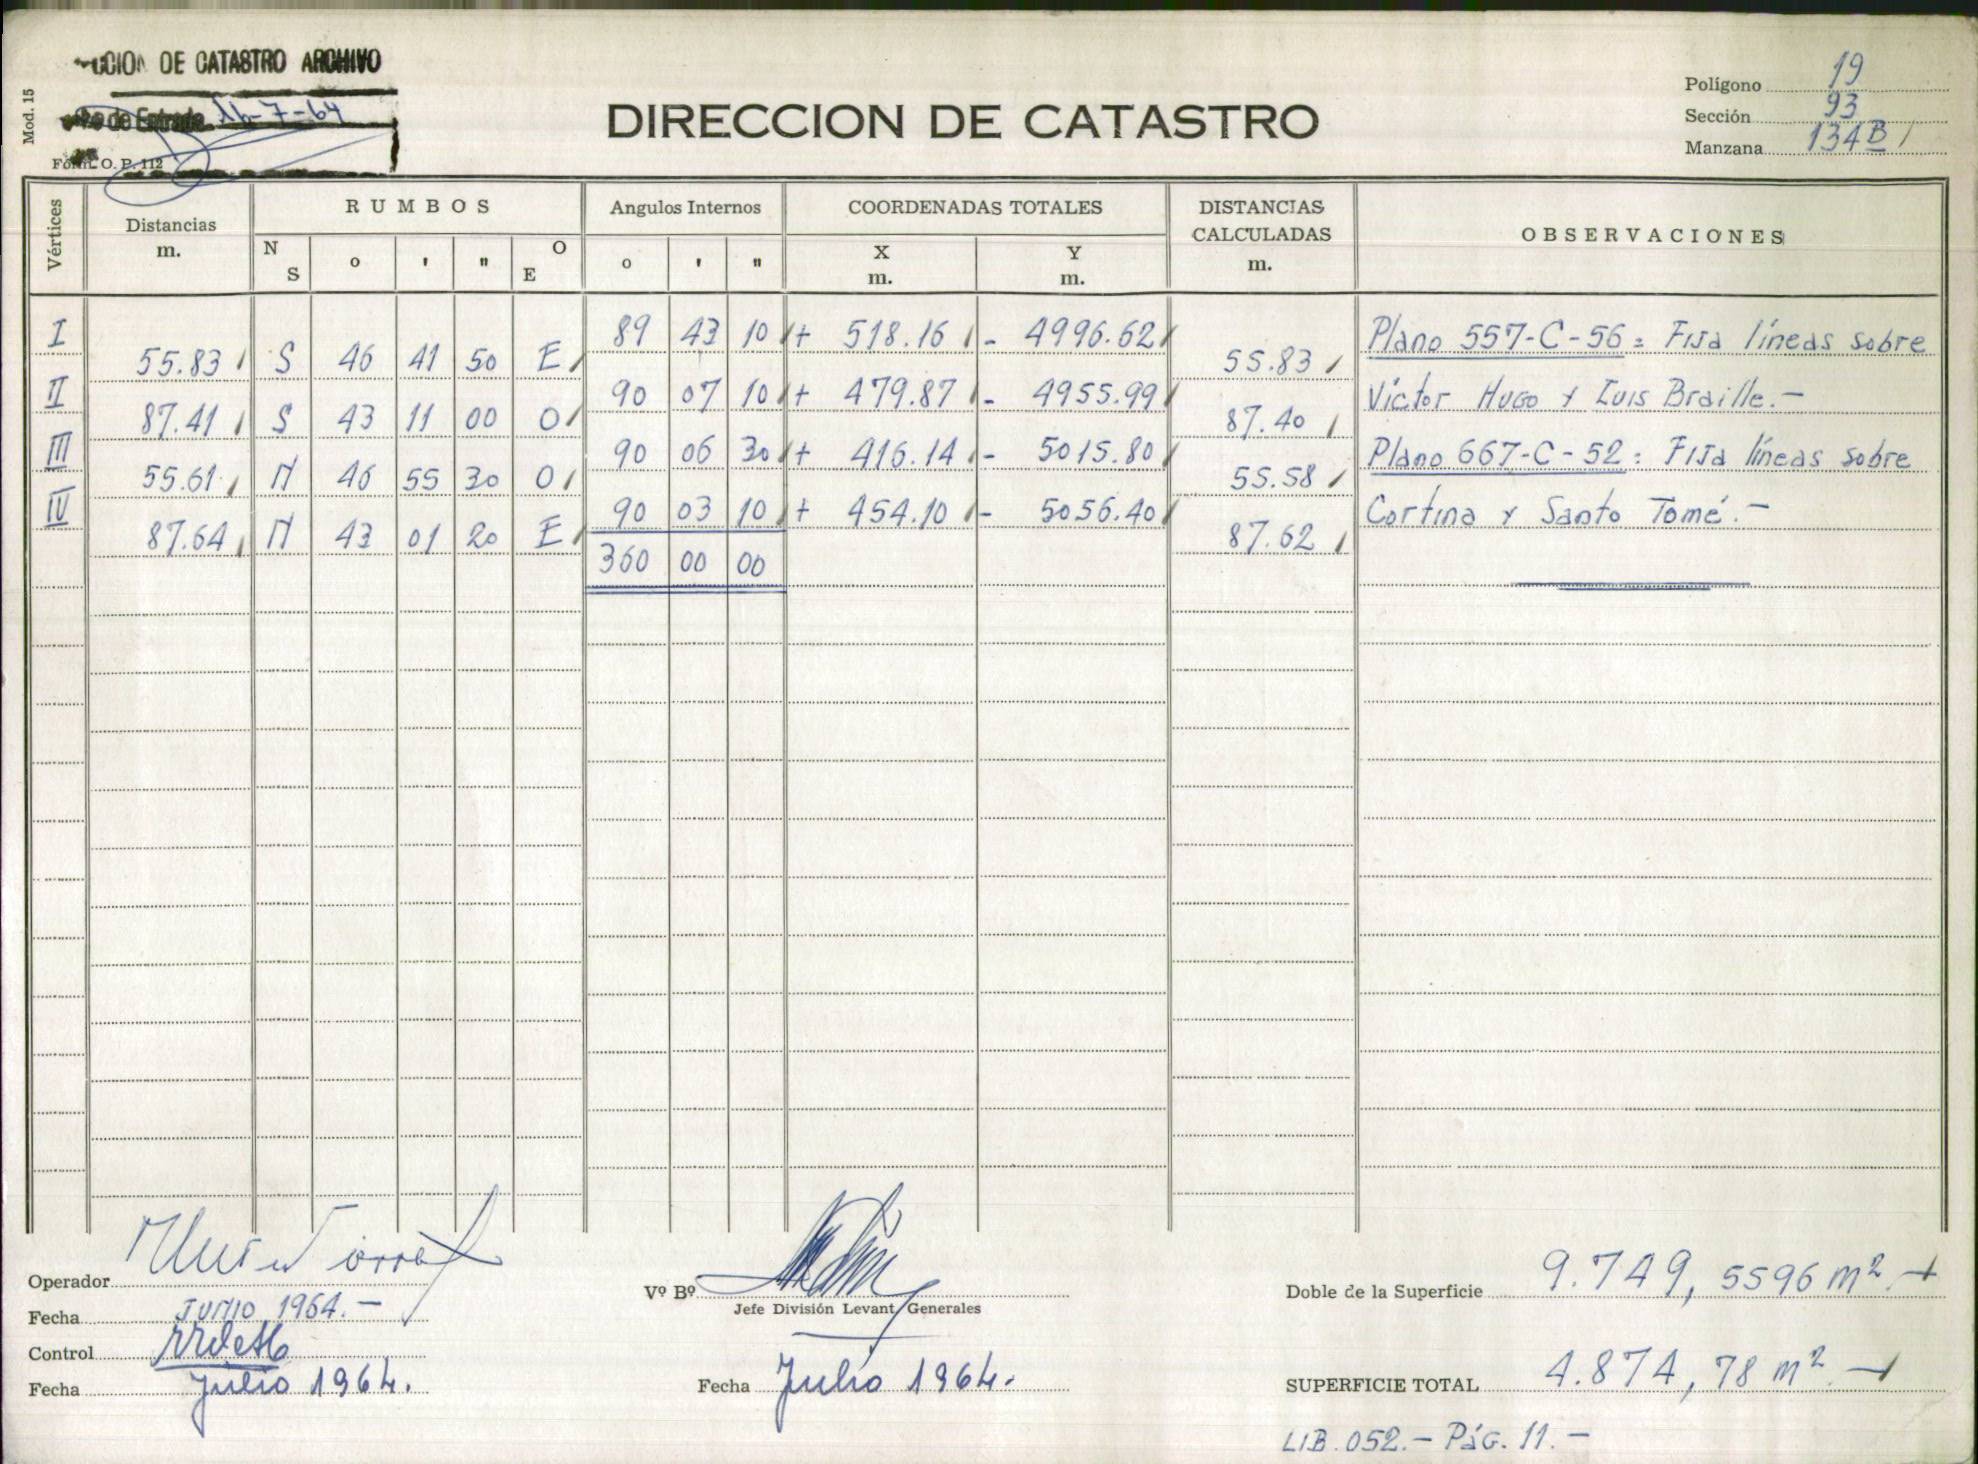 DE CATASTRO ARCHIVO
de Entrada 16-7-64
Mod. 15
Form. O. P. 112
DIRECCION DE CATASTRO
Polígono 19
Sección 93
Manzana 134B
Vértices
Distancias
m.
RUMBOS
N
S
o
'
"
O
E
Angulos Internos
o
'
"
COORDENADAS TOTALES
X
m.
Y
m.
DISTANCIAS
CALCULADAS
m.
OBSERVACIONES
I 89 43 10 + 518.16 - 4996.62 Plano 557-C-56: Fija líneas sobre
55.83 S 46 41 50 E 55.83
II 90 07 10 + 479.87 - 4955.99 Víctor Hugo y Luis Braille.-
87.41 S 43 11 00 O 87.40
III 90 06 30 + 416.14 - 5015.80 Plano 667-C-52: Fija líneas sobre
55.61 N 46 55 30 O 55.58
IV 90 03 10 + 454.10 - 5056.40 Cortina y Santo Tomé.-
87.64 N 43 01 20 E 87.62
360 00 00
Operador
Fecha JUNIO 1964.-
Control
Fecha Julio 1964.
Vº Bº
Jefe División Levant Generales
Fecha Julio 1964.
Doble de la Superficie 9.749,5596 m²
SUPERFICIE TOTAL 4.874,78 m²
LIB. 052.- Pág. 11.-